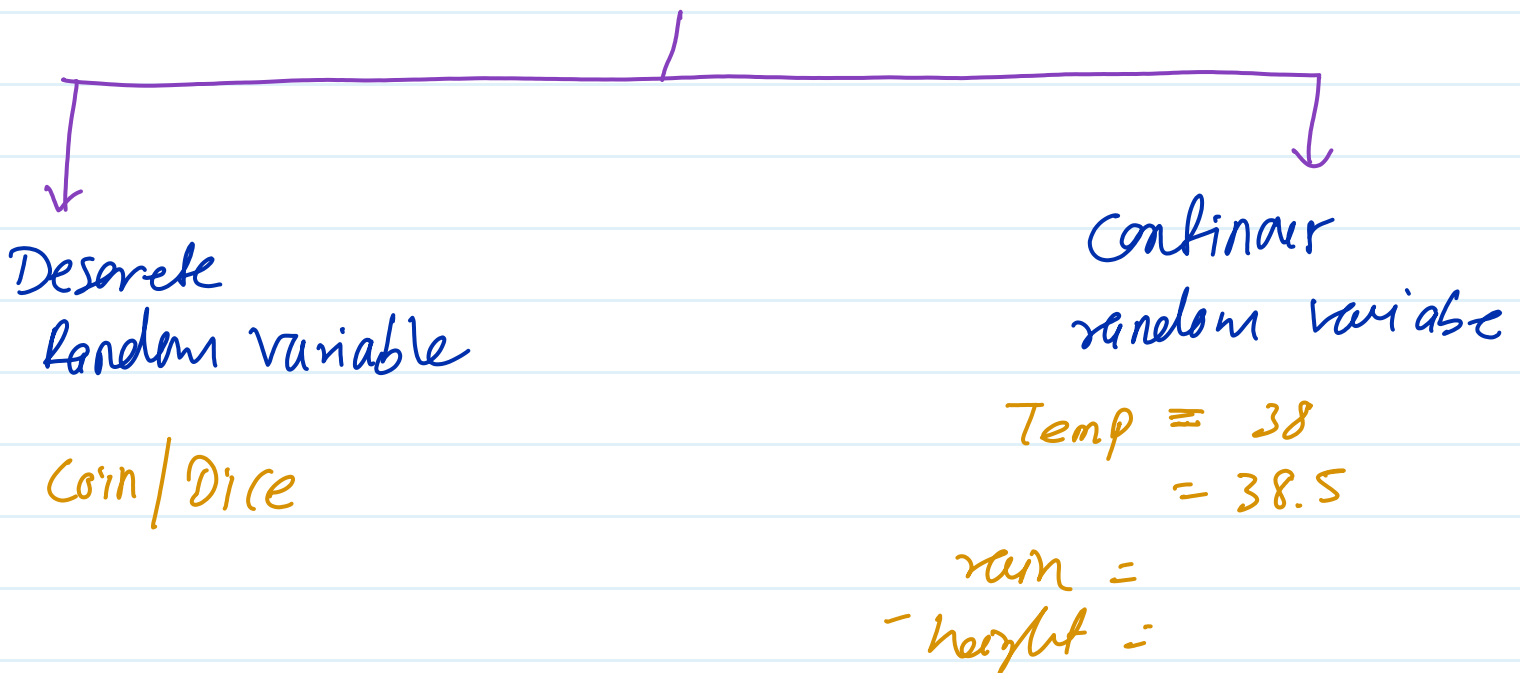 Desarete
Random variable
Coin/Dice
Continair
random variabe
Temp = 38
= 38.5
rain =
- height =